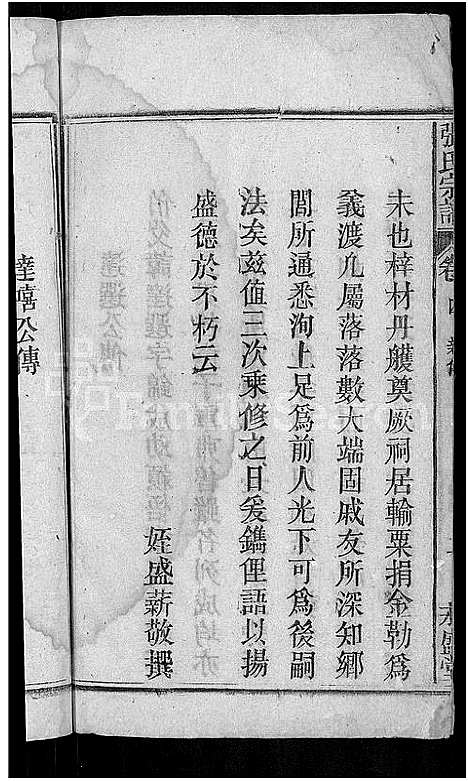 張氏宗譜 卷四
未也梓材丹艧奠厥祠居輸粟捐金勒爲
義渡凡屬落落數大端固戚友所深知鄉
閭所通悉洵上足爲前人光下可爲後嗣
法矣茲值三次乘修之日爰鐫俚語以揚
盛德於不朽云
姪盛薪敬撰
達嘻公傳